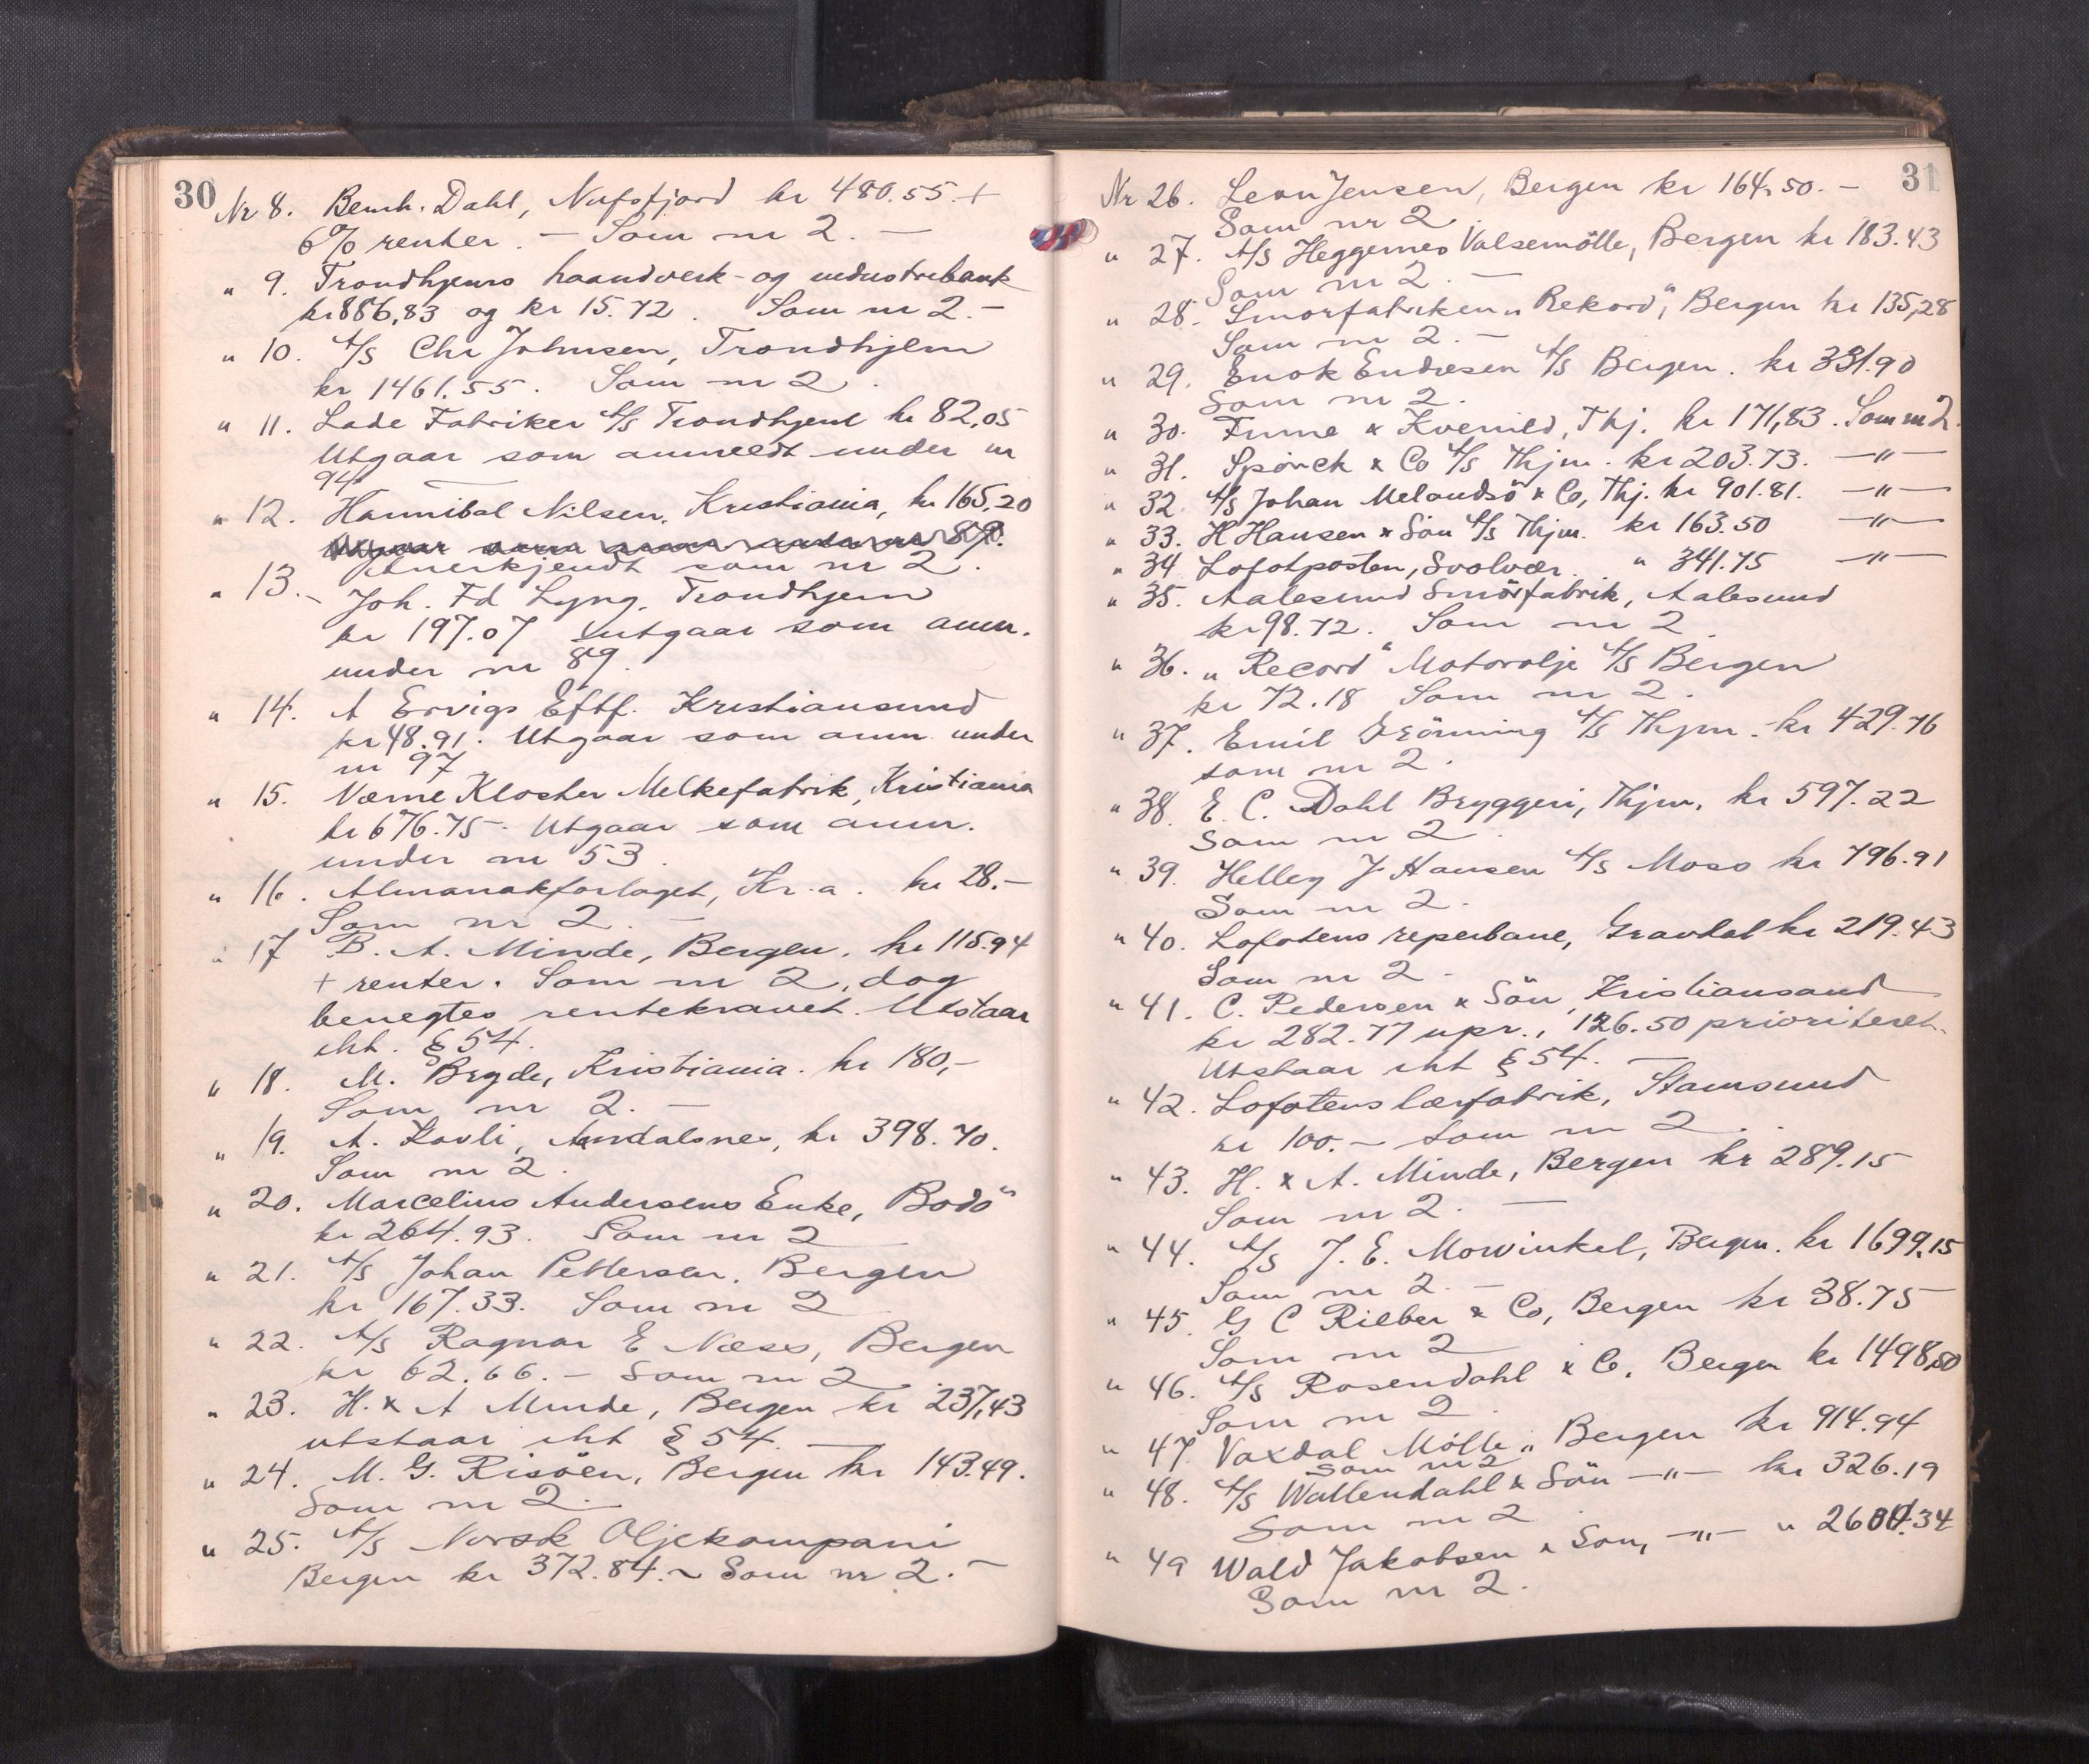 30
Nr 8. Bernh. Dahl, Nufsfjord kr 480.55 +
6% renter. — Som nr 2. —
" 9. Trondhjems haandverk- og industribank
kr 886,83 og kr 15.72. Som nr 2. —
" 10. A/S Chr Johnsen, Trondhjem
kr 1461.55. Som nr 2.
" 11. Lade Fabriker A/S Trondhjem kr 82,05
Utgaar som anmeldt under nr
94. —
" 12. Hannibal Nilsen, Kristiania, kr 165,20
Anerkjendt som nr 2.
" 13. Joh. Fd Lyng, Trondhjem
kr 197.07 utgaar som anm.
under nr 89.
" 14. A Ervigs Eftf. Kristiansund
kr 48.91. Utgaar som anm under
nr 97
" 15. Værne Kloster Melkefabrik, Kristiania
kr 676.75. Utgaar som anm.
under nr 53.
" 16. Almanakforlaget, Kr.a. kr 28.—
Som nr 2. —
" 17 B. A. Minde, Bergen. kr 115.94
+ renter. Som nr 2, dog
benegtes rentekravet. Utstaar
iht. § 54.
" 18. M. Brgde, Kristiania. kr 180,-
Som nr 2. —
" 19. A. Kavli, Aandalsnes, kr 398.70.
Som nr 2.
" 20. Marcelius Andersens Enke, Bodö
kr 264.93. Som nr 2
" 21. A/S Johan Pettersen. Bergen
kr 167.33. Som nr 2
" 22. A/S Ragnar E Næss, Bergen
kr 62.66. — Som nr 2.
" 23. H. & A Minde, Bergen kr 237,43
utstaar iht § 54. —
" 24. M. G. Risöen, Bergen kr 143.49.
Som nr 2. —
" 25. A/S Norsk Oljekompani
Bergen kr 372.84. ~ Som nr 2. —
31
Nr 26. Leon Jensen, Bergen kr 164.50. —
Som nr 2
" 27. A/S Heggernes Valsemölle, Bergen kr 183.43
Som nr 2. —
" 28. Smörfabriken „Rekord", Bergen kr 135,28
Som nr 2. —
" 29. Enok Endresen A/S Bergen. kr 331.90
Som nr 2.
" 30. Finne & Kvenild, Thj. kr 171,83. Som nr 2.
" 31. Spörck & Co A/S Thjm. kr 203.73. —"—
" 32. A/S Johan Melandsö & Co, Thj. kr 901.81. —"—
" 33. H Hansen & Sön A/S Thjm. kr 163.50 —"—
" 34 Lofotposten, Svolvær. " 341.75 —"—
" 35. Aalesund Smörfabrik, Aalesund
kr 98.72. Som nr 2.
" 36. „Record" Motorolje A/S Bergen
kr 72.18 Som nr 2.
" 37. Emil Grönning A/S Thjm. kr 429.76
som nr 2.
" 38. E. C. Dahl Bryggeri, Thjm. kr 597.22
Som nr 2.
" 39. Helley J Hansen A/S Moss kr 796.91
Som nr 2.
" 40. Lofotens reperbane, Gravdal kr 219.43
Som nr 2.
" 41. C. Pedersen & Sön, Kristiansand
kr 282.77 upr., 126.50 prioriteret.
Utstaar iht § 54. —
" 42. Lofotens lærfabrik, Stamsund
kr 100. — Som nr 2.
" 43. H. & A. Minde, Bergen kr 289.15
Som nr 2. —
" 44. A/S J. E. Mowinkel, Bergen. kr 1699,15
Som nr 2. —
" 45. G C Rieber & Co, Bergen kr 38.75
Som nr 2
" 46. A/S Rosendahl & Co. Bergen kr 1498,50
Som nr 2.
" 47. Vaxdal Mölle, Bergen kr 914.94
Som nr 2
" 48. A/S Wallendahl & Sön —"— kr 326.19
Som nr 2
" 49 Wald Jakobsen & Son, —"— "
Som nr 2.